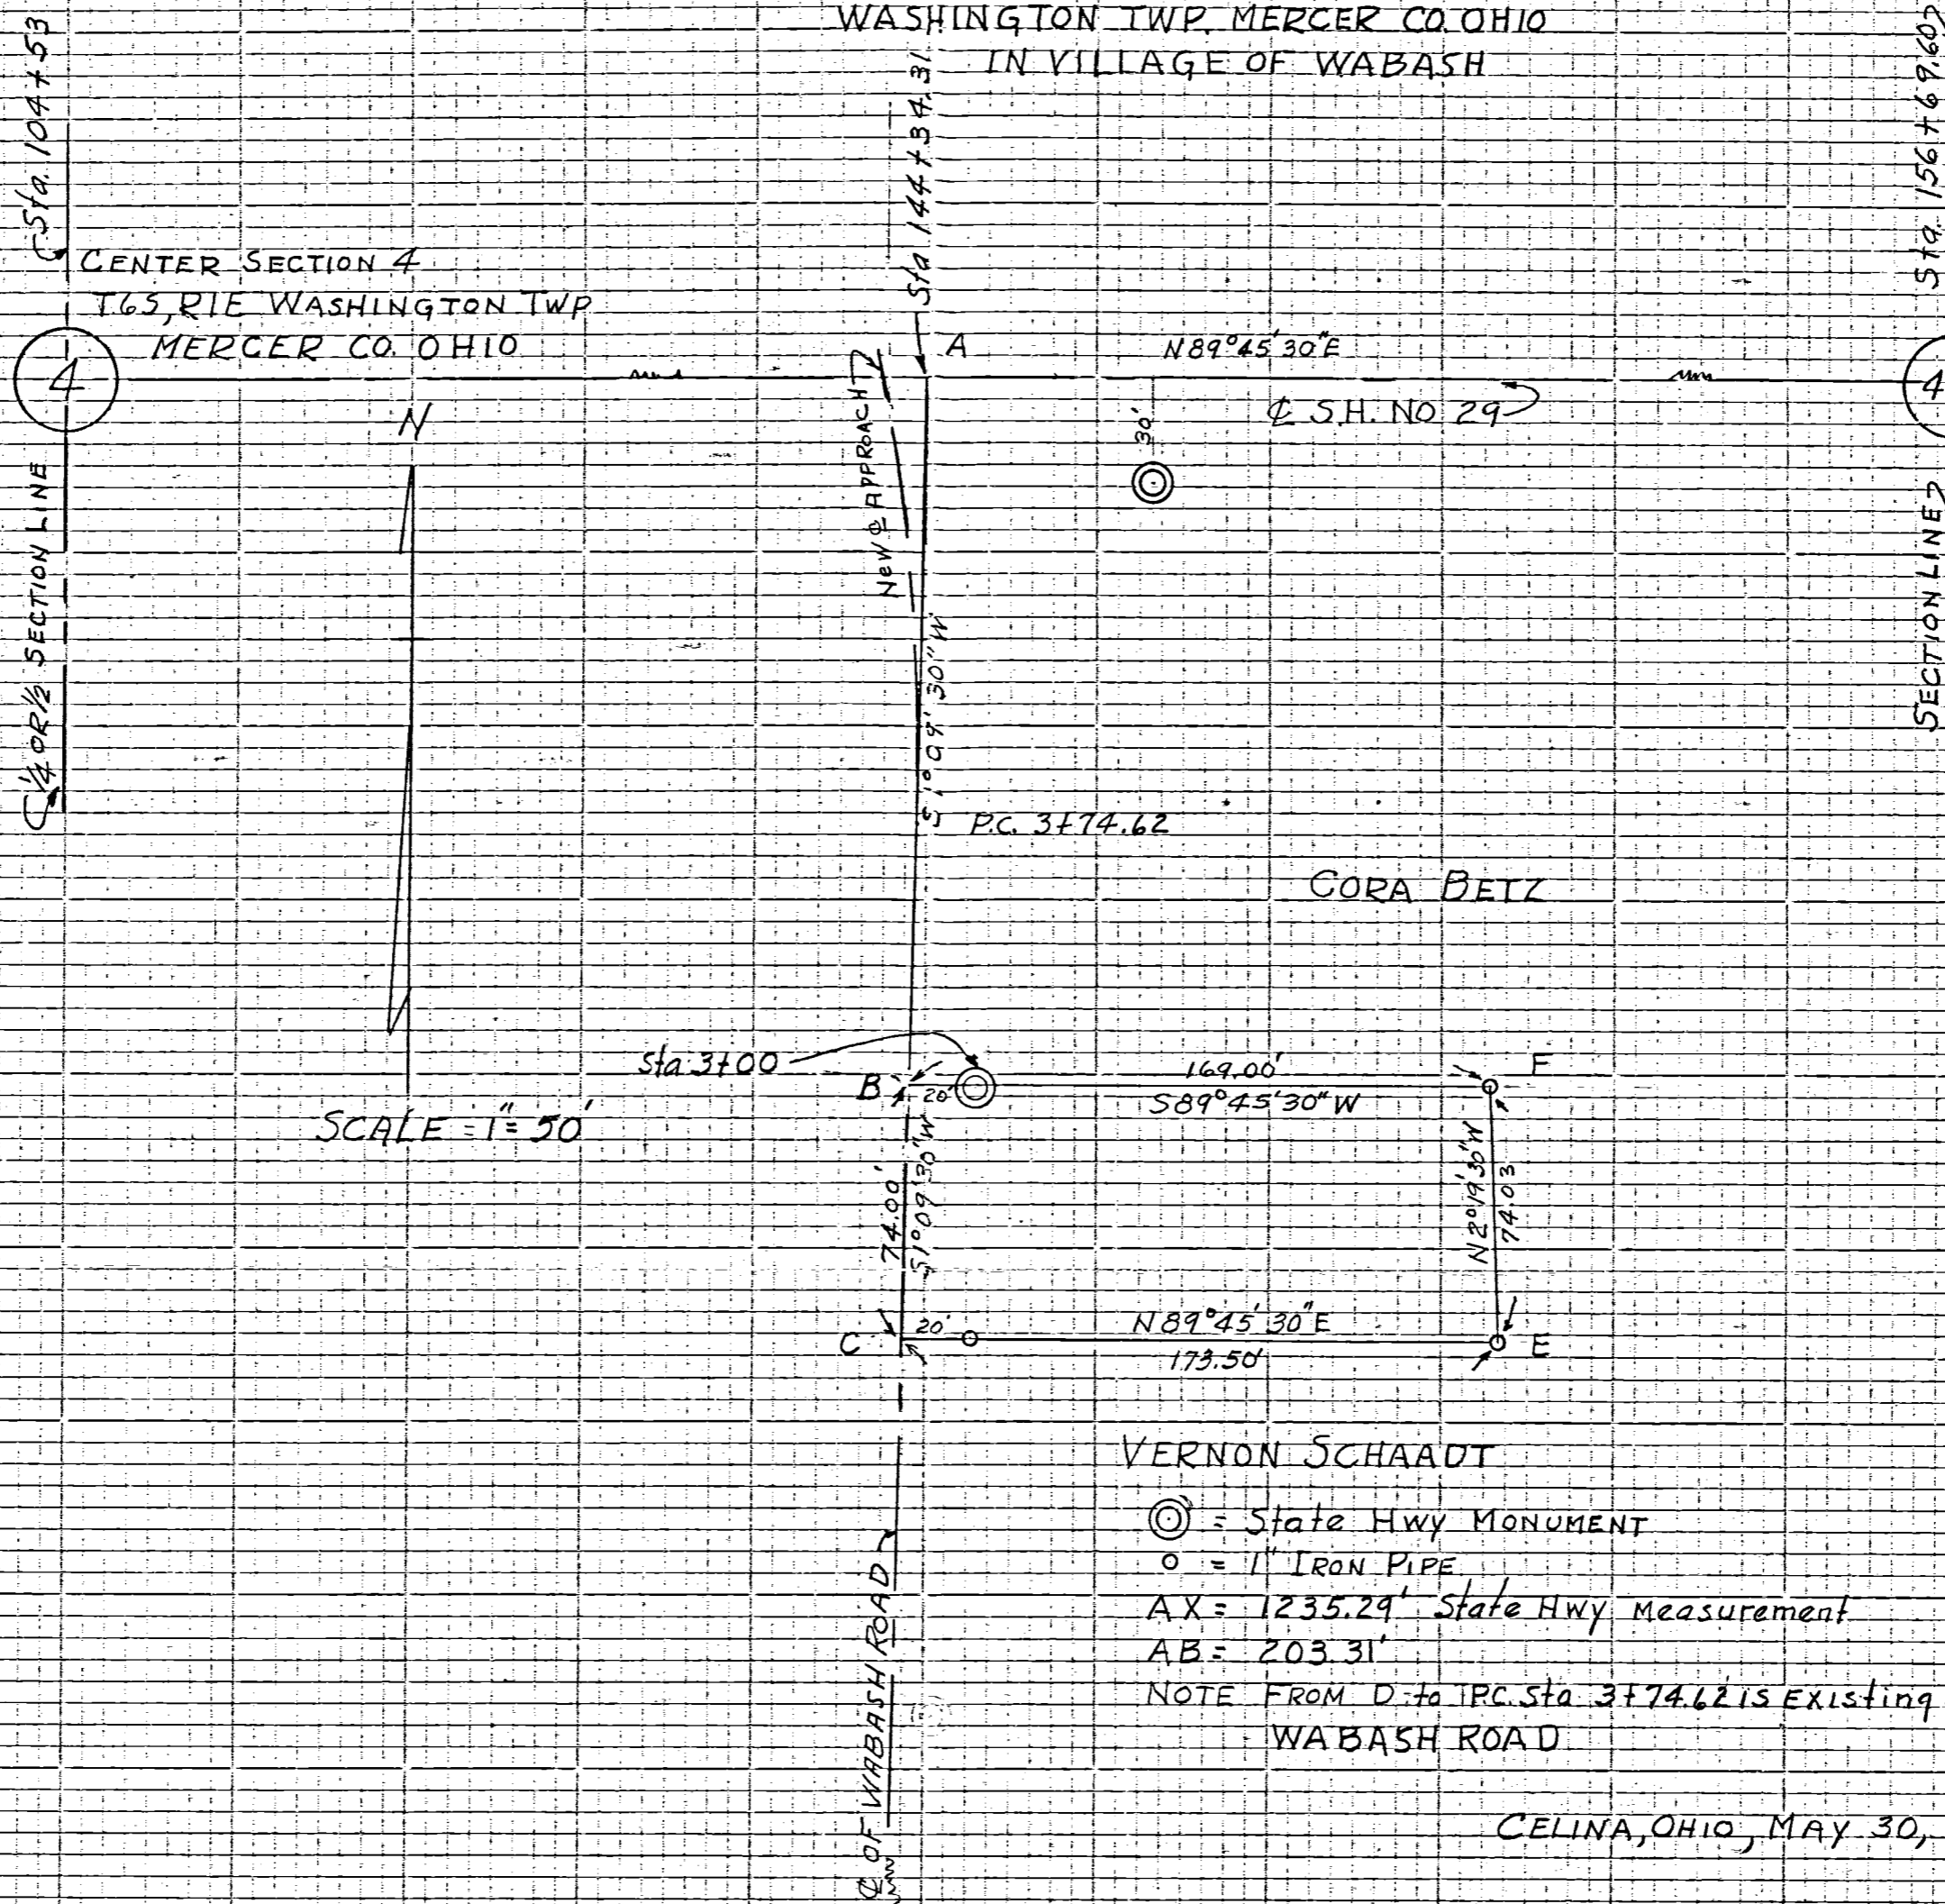 WASHINGTON TWP. MERCER CO. OHIO
IN VILLAGE OF WABASH
Sta. 104+53
Sta 144+34.31
Sta. 156+69.60
CENTER SECTION 4
T6S, R1E WASHINGTON TWP
MERCER CO. OHIO
4
A
N89°45'30"E
4
℄ S.H. NO 29
N
30'
NEW ℄ APPROACH
1/4 OR 1/2 SECTION LINE
SECTION LINE
S1°09'30"W
P.C. 3+74.62
CORA BETZ
Sta 3+00
B
20'
169.00'
S89°45'30"W
F
SCALE = 1" = 50'
74.00'
S1°09'30"W
N2°19'30"W
74.03
C
20'
N89°45'30"E
173.50'
E
VERNON SCHAADT
= State Hwy MONUMENT
= 1" IRON PIPE
AX = 1235.29' State Hwy Measurement
AB = 203.31'
NOTE FROM D to P.C. Sta 3+74.62 is Existing
WABASH ROAD
℄ OF WABASH ROAD
CELINA, OHIO, MAY 30,